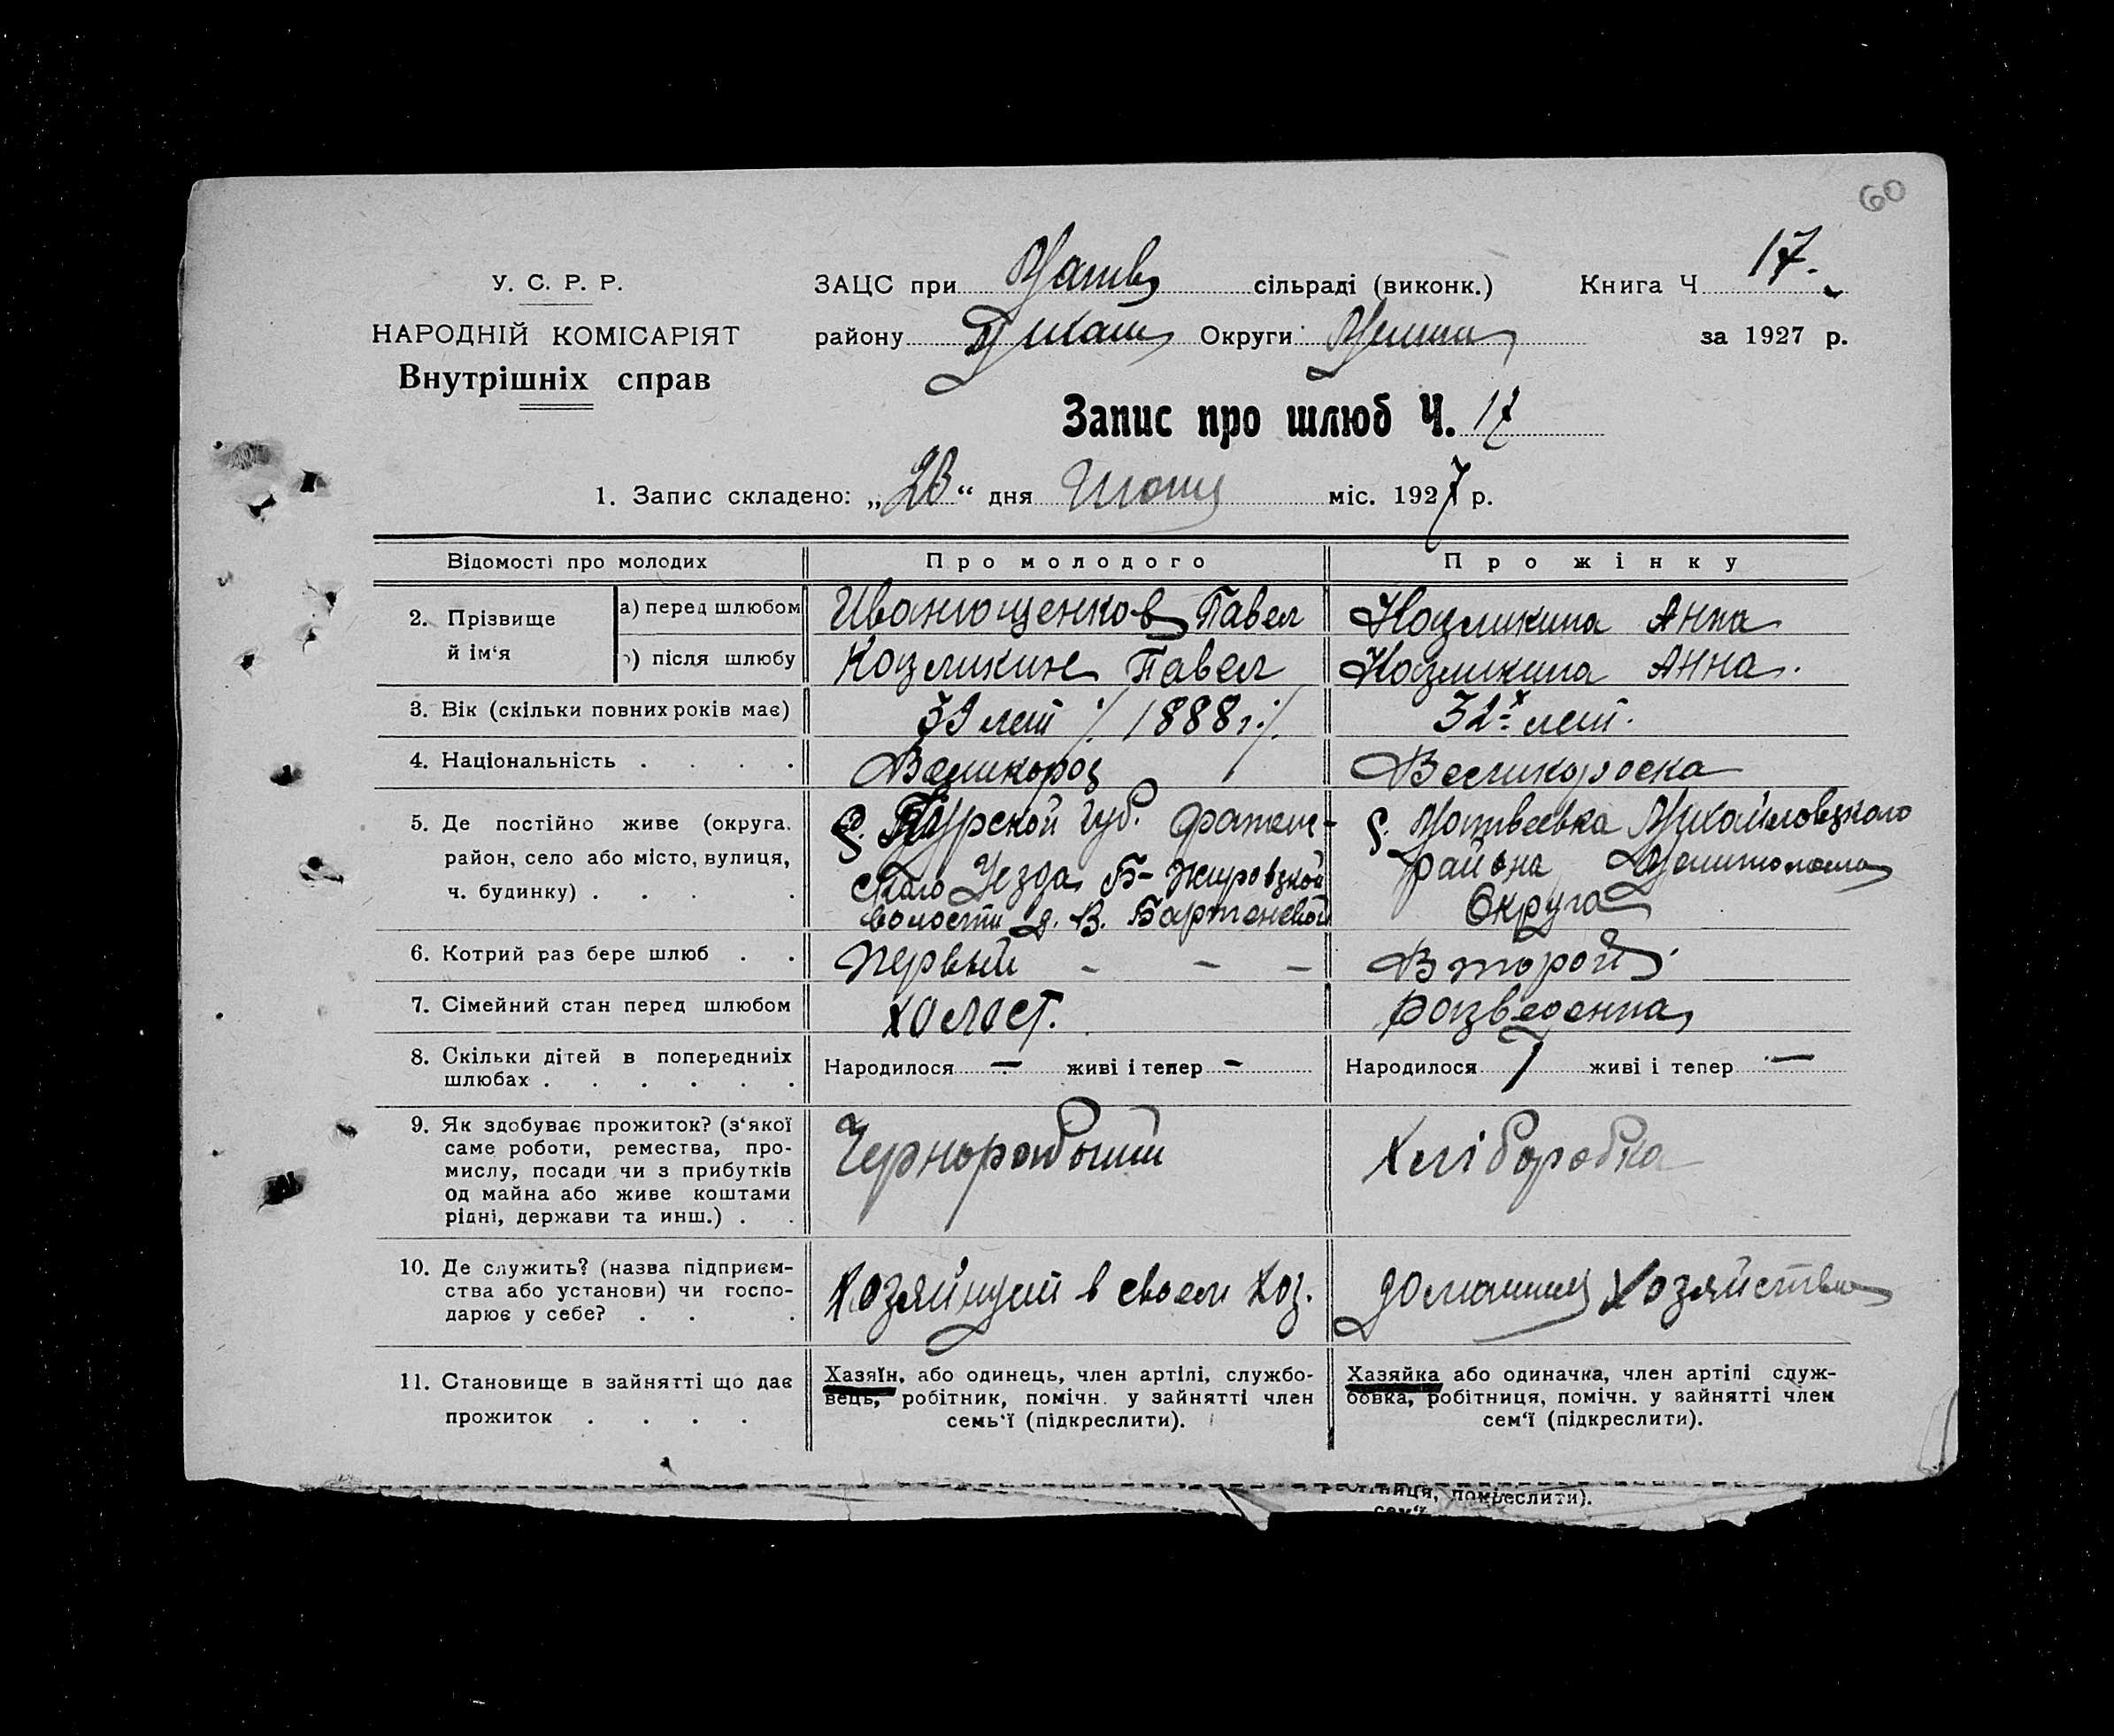 60
У. С. Р. Р.
НАРОДНІЙ КОМІСАРІЯТ
Внутрішніх справ
ЗАЦС при Матв сільраді (виконк.) Книга Ч 17.
району Михат Округи Мелит за 1927 р.
Запис про шлюб Ч. 17
1. Запис складено: „23“ дня міс. 1927 р.
Відомості про молодих Про молодого Про жінку
2. Прізвище й ім‘я
а) перед шлюбом Иванющенков Павел Козликина Анна
б) після шлюбу Козликин Павел Козликина Анна.
3. Вік (скільки повних років має) 39 лет /. 1888 г. /. 32-х лет.
4. Національність . . . . Великорос Великороска
5. Де постійно живе (округа, район, село або місто, вулиця, ч. будинку) . . . .
Курской губ. Фатеж-
ского Уезда Б-Жировской
волости д. В. Бартеневой
с. Матвеевка Михайловского
района Мелитополь
Округа
6. Котрий раз бере шлюб . . Первый - - - Второй.
7. Сімейний стан перед шлюбом холост. разведенна
8. Скільки дітей в попередниіх шлюбах . . . . . .
Народилося — живі і тепер -
Народилося 1 живі і тепер —
9. Як здобуває прожиток? (з‘якої
саме роботи, ремества, про-
мислу, посади чи з прибутків
од майна або живе коштами
рідні, держави та инш.) . .
Чернорабочий
Хліборобка
10. Де служить? (назва підприєм-
ства або установи) чи госпо-
дарює у себе? . . .
Хозяйнует в своем хоз.
домашнее Хозяйство
11. Становище в зайнятті що дає
прожиток . . . .
Хазяїн, або одинець, член артілі, службо-
вець, робітник, помічн. у зайнятті член
семь‘ї (підкреслити).
Хазяйка або одиначка, член артілі служ-
бовка, робітниця, помічн. у зайнятті член
сем‘ї (підкреслити).
підкреслити).
сем‘ї